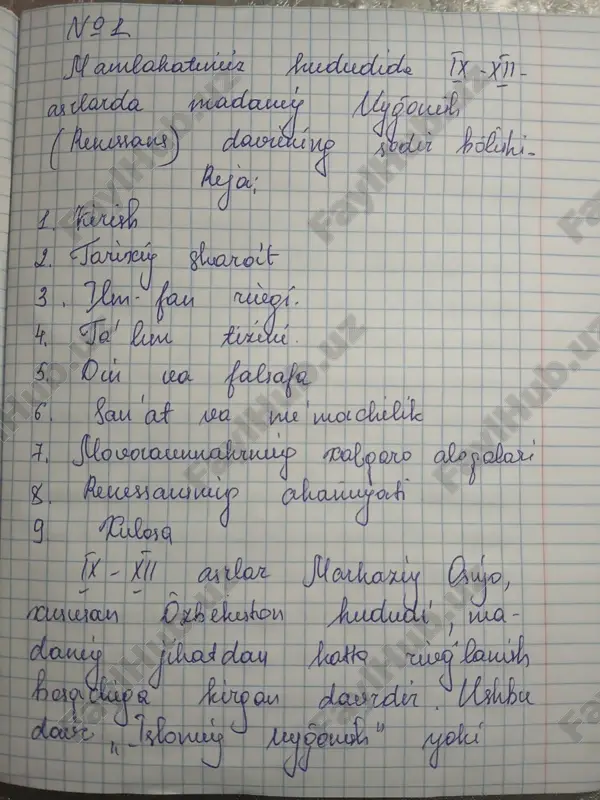 № 1
Mamlakatimiz hududida IX-XII-
asrlarda madaniy Uyg'onish
(Renessans) davrining sodir bo'lishi.
Reja:
1. Kirish
2. Tarixiy sharoit
3. Ilm-fan rivoji.
4. Ta'lim tizimi.
5. Din va falsafa
6. San'at va me'morchilik
7. Movarounnahrning xalqaro aloqalari
8. Renessansning ahamiyati
9. Xulosa
IX-XII asrlar Markaziy Osiyo,
xususan O'zbekiston hududi, ma-
daniy jihatdan katta rivojlanish
bosqichiga kirgan davrdir. Ushbu
davr "Islomiy uyg'onish" yoki
FaylHub.uz